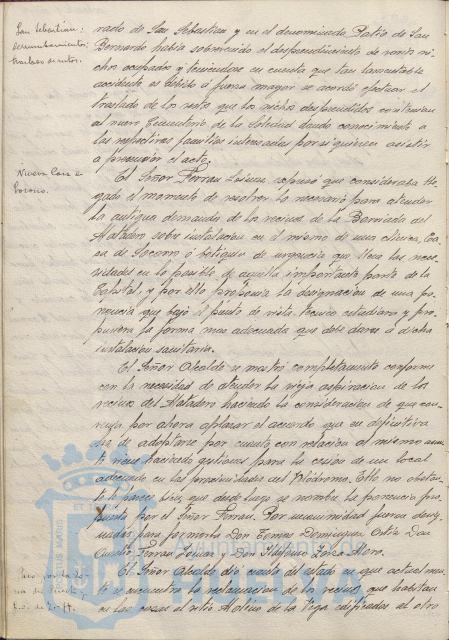 San Sebastián:
desprendimientos
rado de San Sebastian y en el denominado Patio de San
Bernardo habia sobrevenido el desprendimiento de varios ni-
chos ocupados y teniendose en cuenta que tan lamentable
accidente es debido a fuerza mayor se acordó efectuar el
traslado de los restos que los nichos desprendidos contienen
al nuevo Cementerio de la Soledad dando conocimiento a
las respectivas familias interesadas por si quieren asistir
a presenciar el acto.
Nueva Casa de
Socorro.
El Señor Terrau expuso que consideraba lle-
gado el momento de resolver lo necesario para atender
la antigua demanda de los vecinos de la Barriada del
Matadero sobre instalacion en el mismo de una clinica, Ca-
sa de Socorro o botiquin de urgencia que llene las nece-
sidades en lo posible de aquella importante parte de la
Capital, y por ello proponia la designacion de una po-
nencia que bajo el punto de vista tecnico estudiara y pro-
pusiera la forma mas adecuada que debe darse a dicha
instalacion sanitaria.
El Señor Alcalde se mostró completamente conforme
con la necesidad de atender la vieja aspiracion de los
vecinos del Matadero haciendo la consideracion de que con-
venia por ahora aplazar el acuerdo que en definitiva
ha de adoptarse por cuanto con relacion al mismo asun-
to viene haciendo gestiones para la cesion de un local
adecuado en las proximidades del Velódromo. Ello no obstan-
te le parece bien que desde luego se nombre la ponencia pro-
puesta por el Señor Terrau. Por unanimidad fueron desig-
nados para formarla Don Tomas Dominguez Ortiz Don
Terrau y Don Ildefonso
El Señor Alcalde dió cuenta del estado en que actualmen-
te se encuentra la reclamacion de los vecinos que habitan
en las casas al sitio Molino de la Vega edificadas al otro
Ayuntamiento
HUELVA